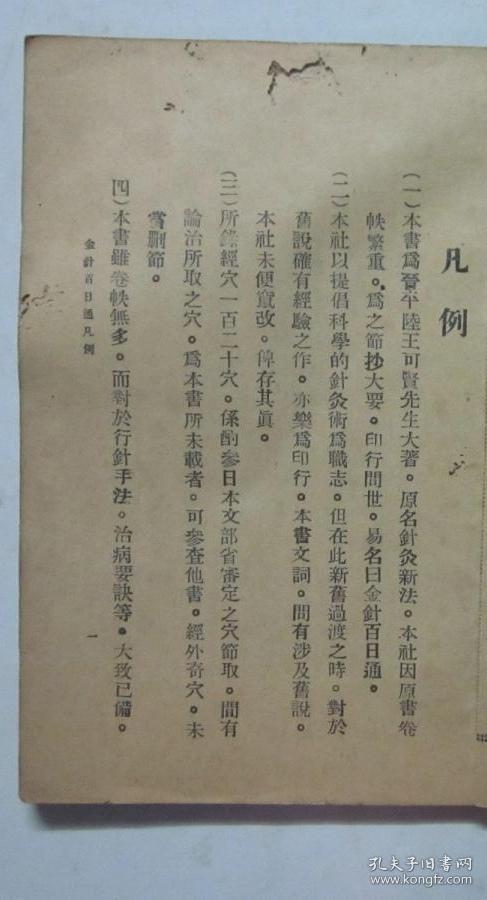 凡例
(一)本書爲晉平陸王可賢先生大著。原名針灸新法。本社因原書卷
帙繁重。爲之節抄大要。印行問世。易名曰金針百日通。
(二)本社以提倡科學的針灸術爲職志。但在此新舊過渡之時。對於
舊說確有經驗之作。亦樂爲印行。本書文詞。間有涉及舊說。
本社未便竄改。俾存其眞。
(三)所錄經穴一百二十穴。係酌參日本文部省審定之穴節取。間有
論治所取之穴。爲本書所未載者。可參查他書。經外奇穴。未
嘗刪節。
(四)本書雖卷帙無多。而對於行針手法。治病要訣等。大致已備。
金針百日通凡例
一
孔夫子旧书网
www.kongfz.com